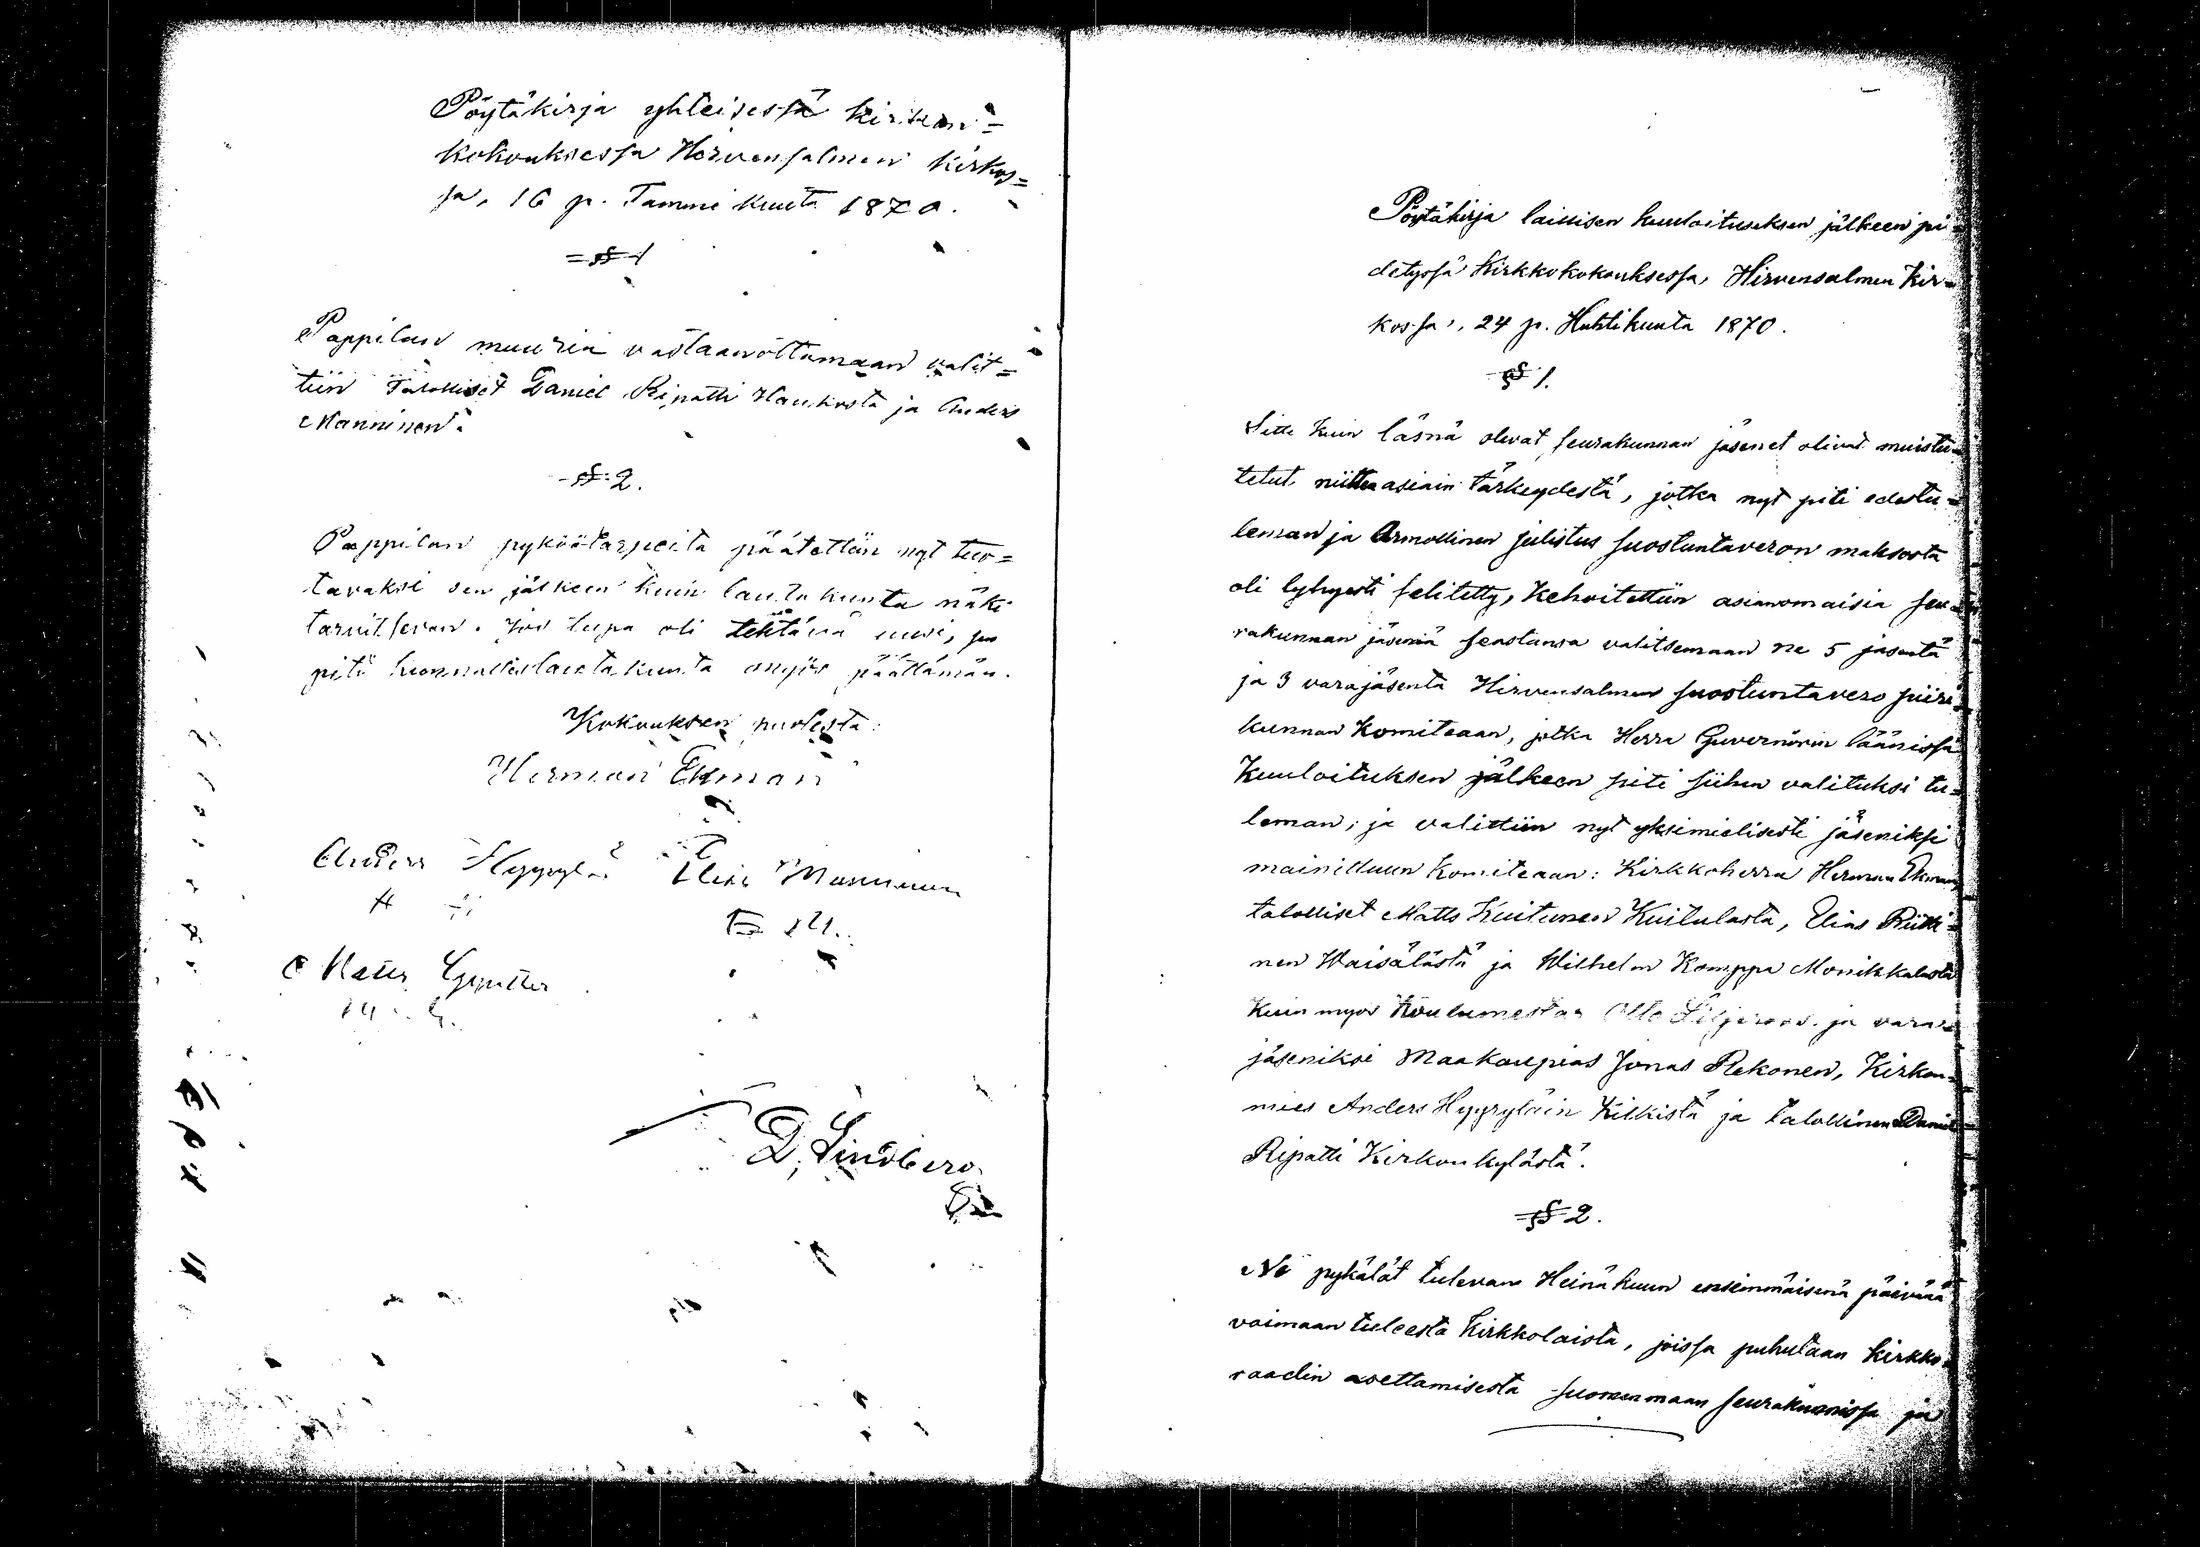 Pöytäkirja yhteisessä kirkon=
kokouksessa Hirvensalmen kirkos=
sa, 16 p. Tammikuuta 1870.
§ 1
Pappilan muuria vastaanottamaan valit=
tiin Talolliset Daniel Ripatti Haukosta ja Anders
Manninen.
§ 2.
Pappilan pyköötarpeita päätettiin nyt tuo=
tavaksi sen jälkeen kuin lautakunta näki
tarvitsevan. Jos tupa oli tehtävä uusi, se
piti kunnallislautakunta myös päättämän.
Kokouksen puolesta:
Herman Ekman
Anders Hyyrylä Elias Manninen
D. Lindberg
Pöytäkirja laillisen kuuloituseksen jälkeen pi=
detyssä Kirkkokokouksessa, Hirvensalmen Kir=
kossa, 24 p. Huhtikuuta 1870.
§ 1.
Sitte kuin läsnä olevat seurakunnan jäsenet olivat muistu=
tetut niitten asiain tärkeydestä, jotka nyt piti edestu=
leman ja Armollinen julistus suostuntaveron maksosta
oli lyhyesti selitetty, Kehoitettiin asianomaisia seu=
rakunnan jäseniä seastansa valitsemaan ne 5 jäsentä
ja 3 varajäsentä Hirvensalmen suostuntavero piiri=
kunnan Komiteaan, jotka Herra Guvernörin läänissä
Kuuloituksen jälkeen piti siihen valituksi tu=
leman; ja valittiin nyt yksimielisesti jäseniksi
mainittuun Komiteaan: Kirkkoherra Herman Ekman
talolliset Matts Kuitunen Kuitulasta, Elias Riitti=
nen Waisälästä ja Wilhelm Komppa Monikkalasta
Kuin myös Koulumestar Otto Liljeroos ja vara=
jäseniksi Maakaupias Jonas Pekonen, Kirkon=
mies Anders Hyyryläin Kilkistä ja talollinen Daniel
Ripatti Kirkonkylästä.
§ 2.
Ne pykälät tulevan Heinäkuun ensimmäisenä päivänä
voimaan tuleesta Kirkkolaista, joissa puhutaan kirkko=
raadin asettamisesta Suomenmaan seurakunnissa ja